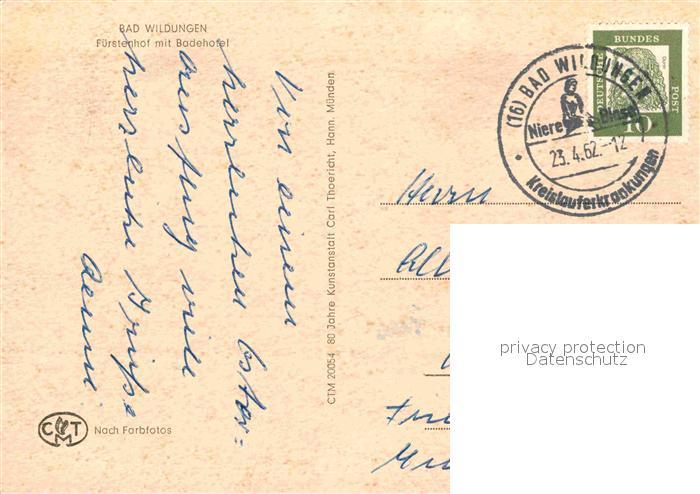 BAD WILDUNGEN
Fürstenhof mit Badehotel
Von einem
herzlichen Oster=
ausflug viele
herzliche Grüße
CTM 20054 80 Jahre Kunstanstalt Carl Thoericht, Hann. Münden
CTM
Nach Farbfotos
(16) BAD WILDUNGEN
Niere
Blase
23.4.62.-12
Kreislauferkrankungen
DEUTSCHE
BUNDES
POST
10
Dürer
Herrn
privacy protection
Datenschutz